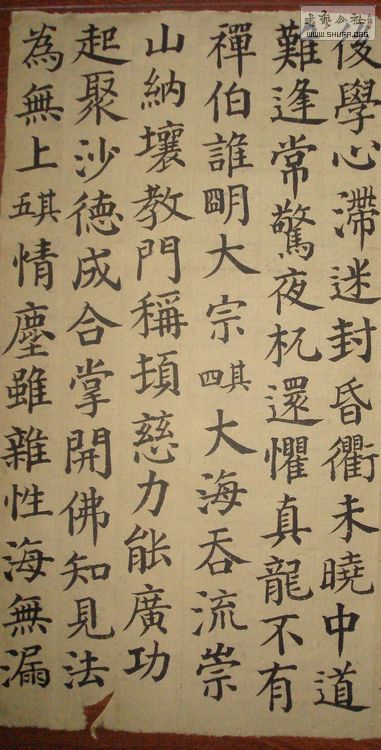 書藝公社
WWW.SHUFA.ORG
後學心滯迷封昏衢未曉中道
難逢常驚夜杌還懼真龍不有
禪伯誰朙大宗其四大海吞流崇
山納壤教門稱頓慈力能廣功
起聚沙德成合掌開佛知見法
為無上其五情塵雖雜性海無漏